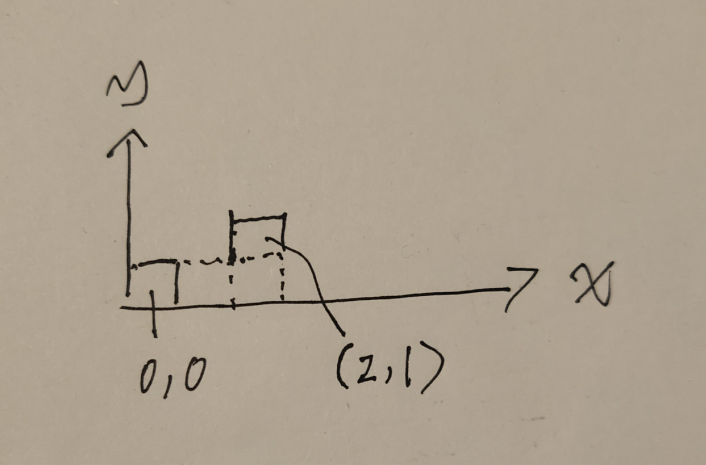 y
x
0,0
(2,1)